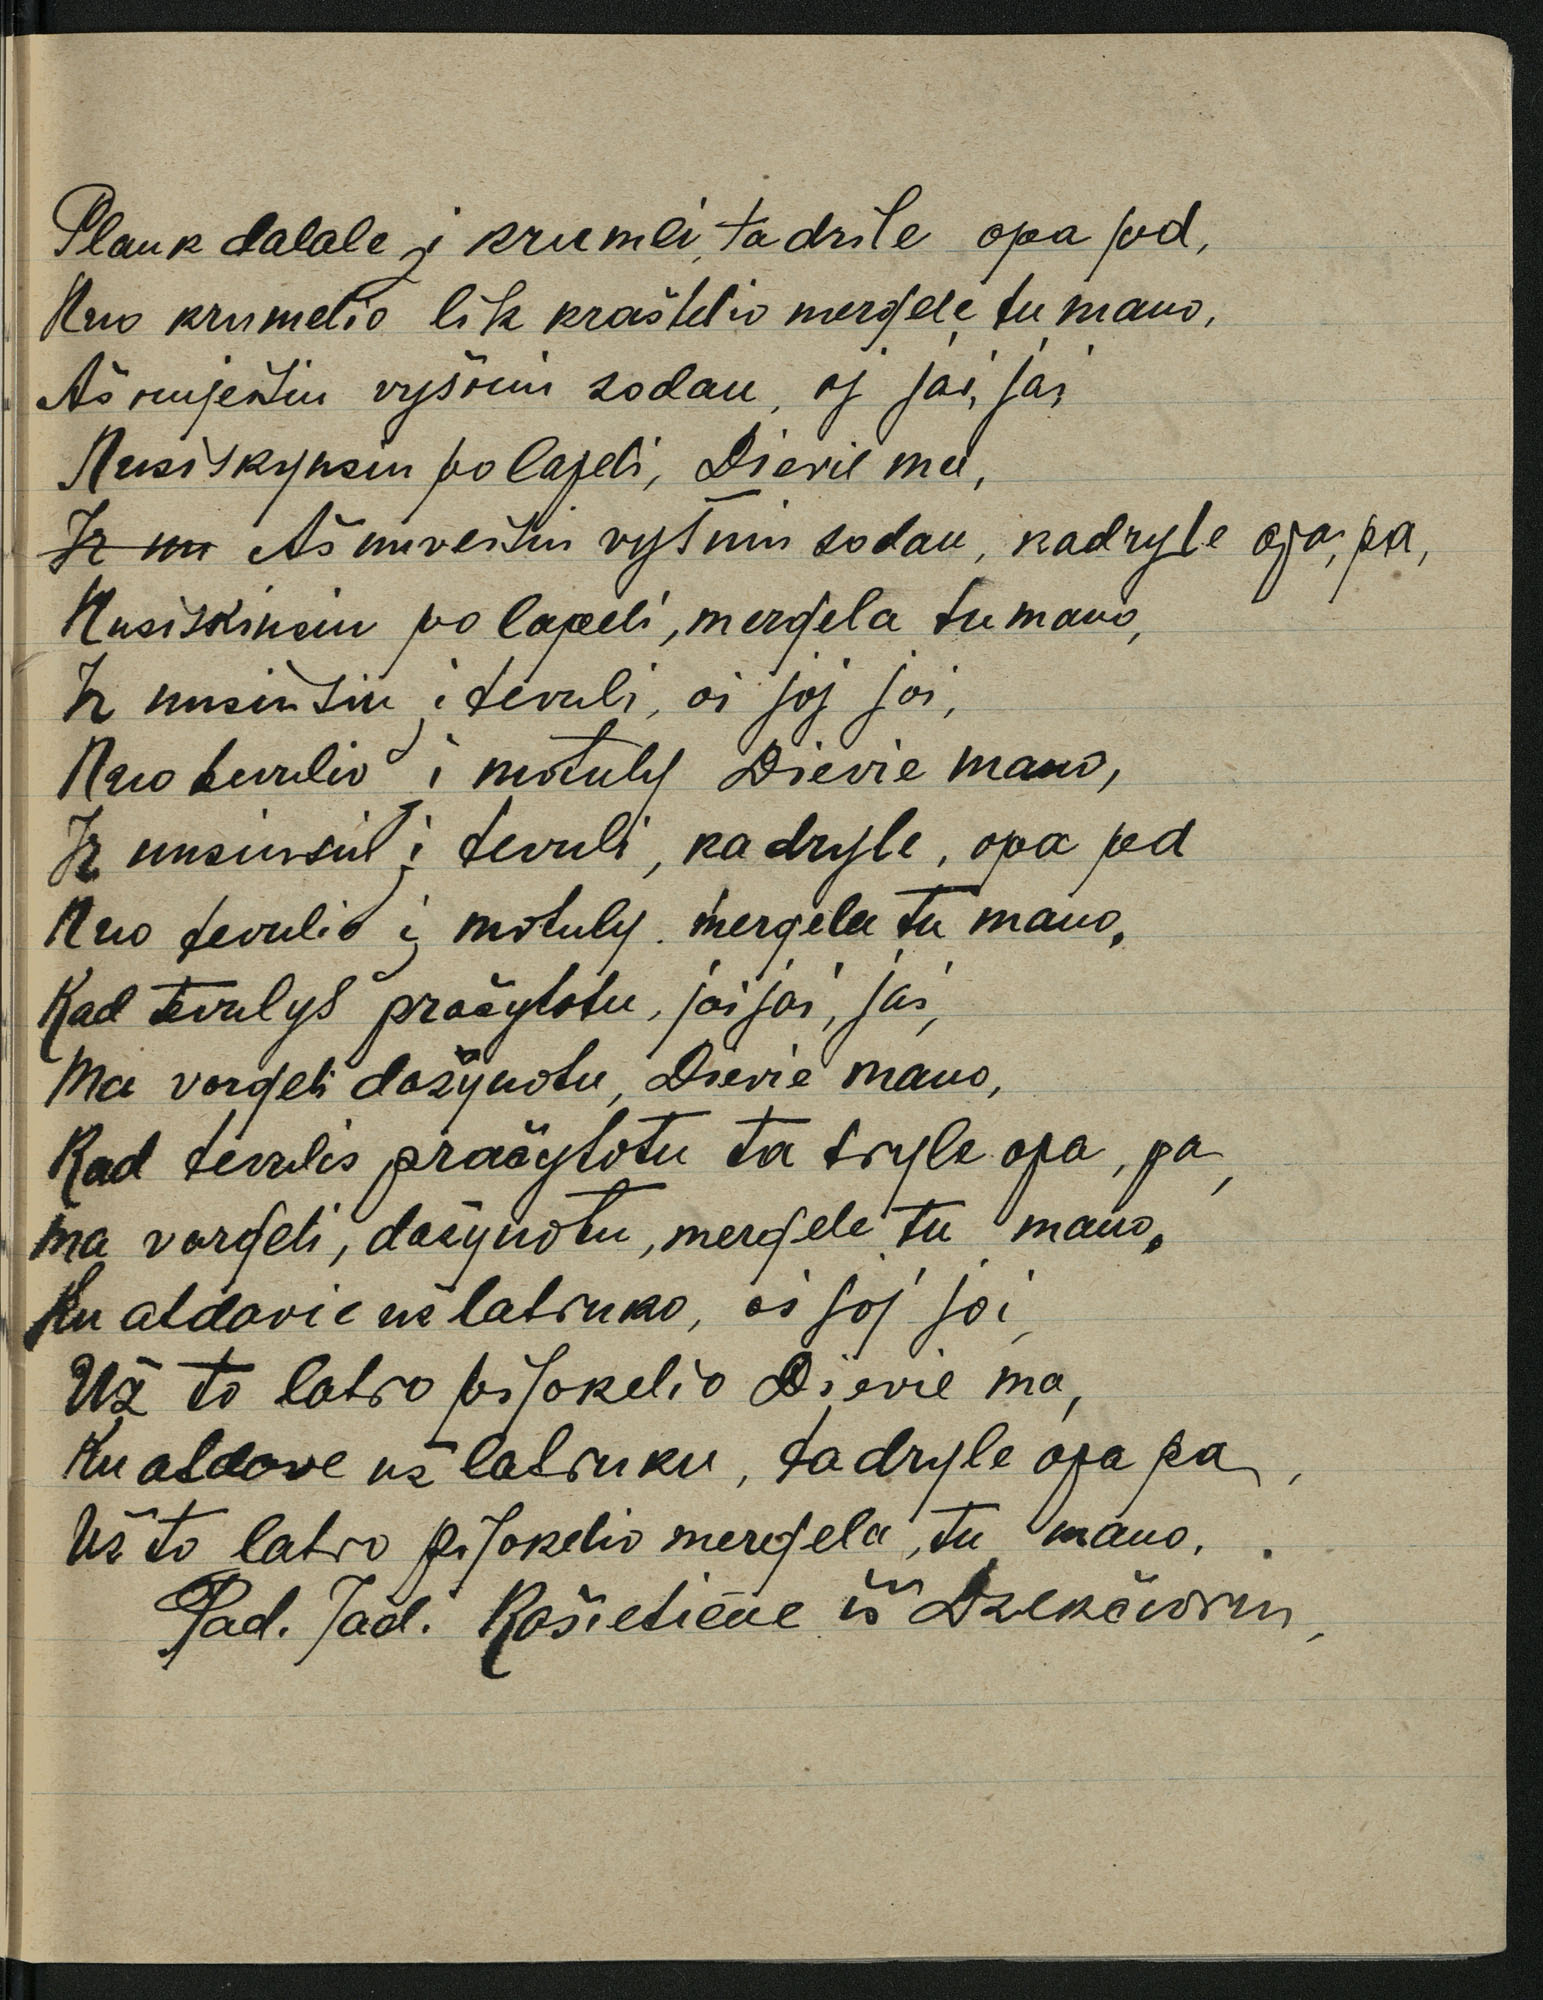 Plauk dalale į krumeli, tadrile opa pd,
Nuo krumelio lik kraštelio mergele tu mano,
Aš nujeisiu vyšniu sodan, oj joi, joi
Nusiskynsiu po lapeli, Dievie ma,
Ir nu Aš nuveisiu vyšniu sodan, kadryle opa, pa,
Nusiskinsiu po lapeli, mergela tu mano,
Ir nusiusiu į tevuli, oi joj joi,
Nuo tevulio i motuly Dievie mano,
Ir nusiusiu į tevuli, kadryle, opa pd
Nuo tevulio į motuly. mergela tu mano.
Kad tevulys pražylotu, joi joi, joi,
Ma vorgeli dažynotu, Dievie mano,
Kad tevulis pražylotu ta tryle opa, pa,
ma vorgeli, dažynotu, mergele tu mano.
Ku atdavie už latruko, oi joj joi,
Už to latro pijokelio Dievie ma,
Ku atdove už latruku, tadryle opa pa,
Už to latro pijokelio mergela, tu mano.
Pad. Jad. Košietiene iš